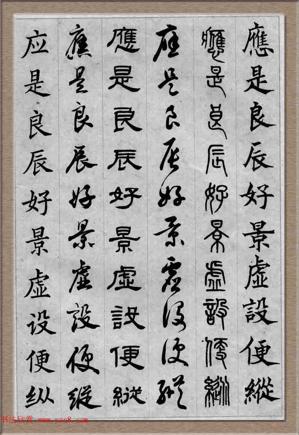 應是良辰好景虛設便縱
應是良辰好景虛設便縱
應是良辰好景虛設便縱
應是良辰好景虛設便縱
應是良辰好景虛設便縱
应是良辰好景虚设便纵